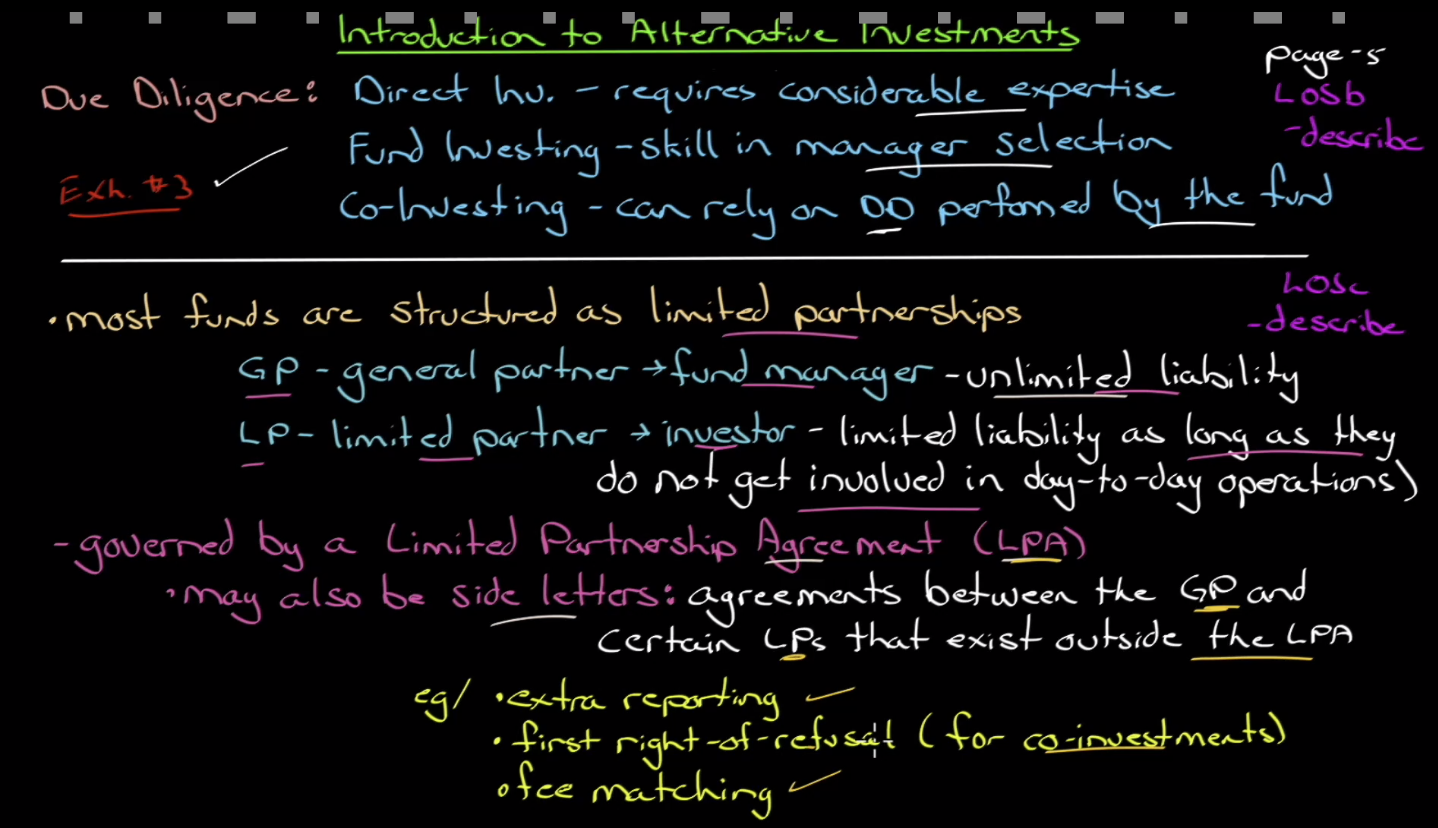 Introduction to Alternative Investments
page-5
Due Diligence: Direct Inv. - requires considerable expertise
LOSb
-describe
Fund Investing - skill in manager selection
Exh. #3
Co-Investing - can rely on DD perfomed by the fund
LOSc
-describe
• most funds are structured as limited partnerships
GP - general partner → fund manager - unlimited liability
LP - limited partner → investor - limited liability as long as they
do not get involved in day-to-day operations)
- governed by a Limited Partnership Agreement (LPA)
• may also be side letters: agreements between the GP and
certain LPs that exist outside the LPA
eg/ • extra reporting
• first right-of-refusal (for co-investments)
• fee matching